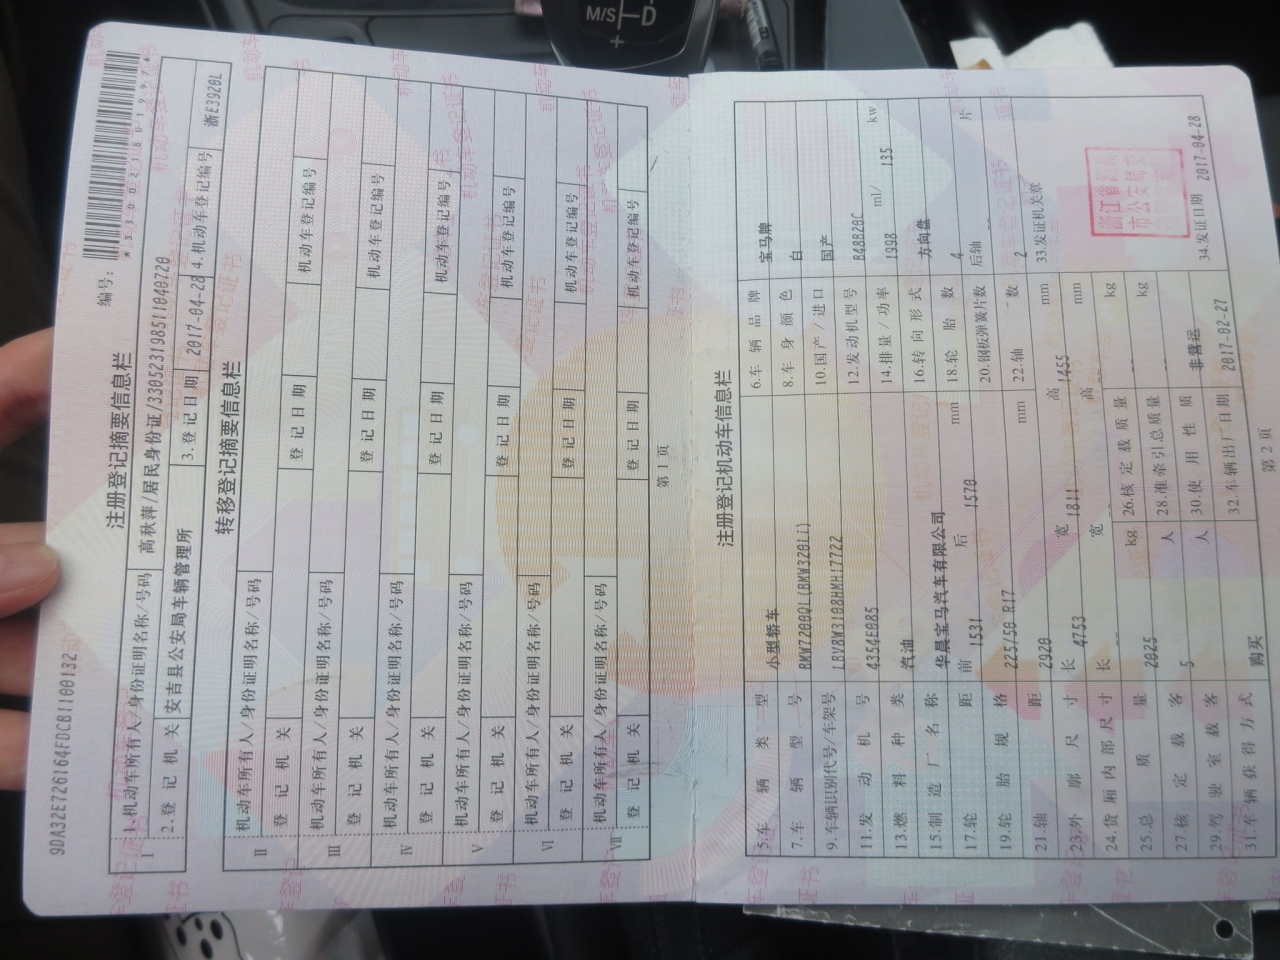 M/S
D
+
9DA32E726164FDCB1100132
编号:
*330021801997*
注册登记摘要信息栏
I
1.机动车所有人/身份证明名称/号码 高秋萍/居民身份证/330523198511040720
2.登记机关 安吉县公安局车辆管理所 3.登记日期 2017-04-28 4.机动车登记编号 浙E3920L
转移登记摘要信息栏
II
机动车所有人/身份证明名称/号码
登记机关 登记日期 机动车登记编号
III
机动车所有人/身份证明名称/号码
登记机关 登记日期 机动车登记编号
IV
机动车所有人/身份证明名称/号码
登记机关 登记日期 机动车登记编号
V
机动车所有人/身份证明名称/号码
登记机关 登记日期 机动车登记编号
VI
机动车所有人/身份证明名称/号码
登记机关 登记日期 机动车登记编号
VII
机动车所有人/身份证明名称/号码
登记机关 登记日期 机动车登记编号
第1页
注册登记机动车信息栏
5.车辆类型 小型轿车 6.车辆品牌 宝马牌
7.车辆型号 BMW7200QL(BMW320Li) 8.车身颜色 白
9.车辆识别代号/车架号 LBV8W3108HMH17722 10.国产/进口 国产
11.发动机号 4354E085 12.发动机型号 B48B20C
13.燃料种类 汽油 14.排量/功率 1998 ml/ 135 kw
15.制造厂名称 华晨宝马汽车有限公司 16.转向形式 方向盘
17.轮距 前 1531 后 1570 mm 18.轮胎数 4
19.轮胎规格 225/50 R17 20.钢板弹簧片数 后轴 -- 片
21.轴距 2920 mm 22.轴数 2
23.外廓尺寸 长 4753 宽 1811 高 1455 mm 33.发证机关章
24.货厢内部尺寸 长 宽 高 mm
25.总质量 2025 kg 26.核定载质量 -- kg
27.核定载客 5 人 28.准牵引总质量 -- kg
29.驾驶室载客 人 30.使用性质 非营运
31.车辆获得方式 购买 32.车辆出厂日期 2017-02-27 34.发证日期 2017-04-28
第2页